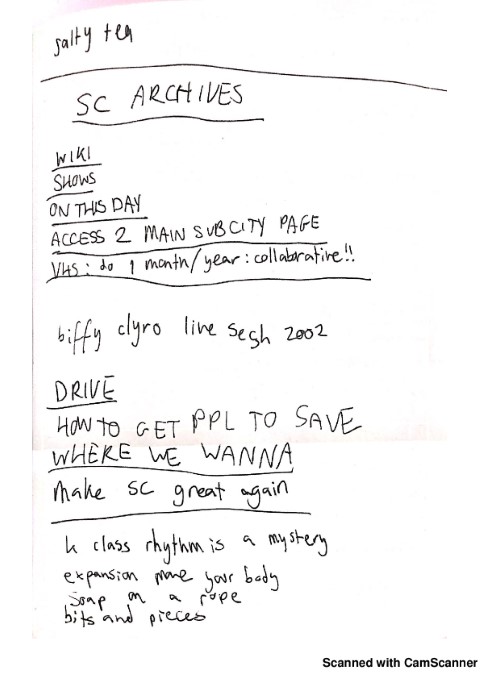 salty tea
SC ARCHIVES
WIKI
SHOWS
ON THIS DAY
ACCESS 2 MAIN SUBCITY PAGE
VHS: do 1 month/year: collaborative!!
biffy clyro live sesh 2002
DRIVE
HOW TO GET PPL TO SAVE
WHERE WE WANNA
Make SC great again
k class rhythm is a mystery
expansion move your body
soap on a rope
bits and pieces
Scanned with CamScanner